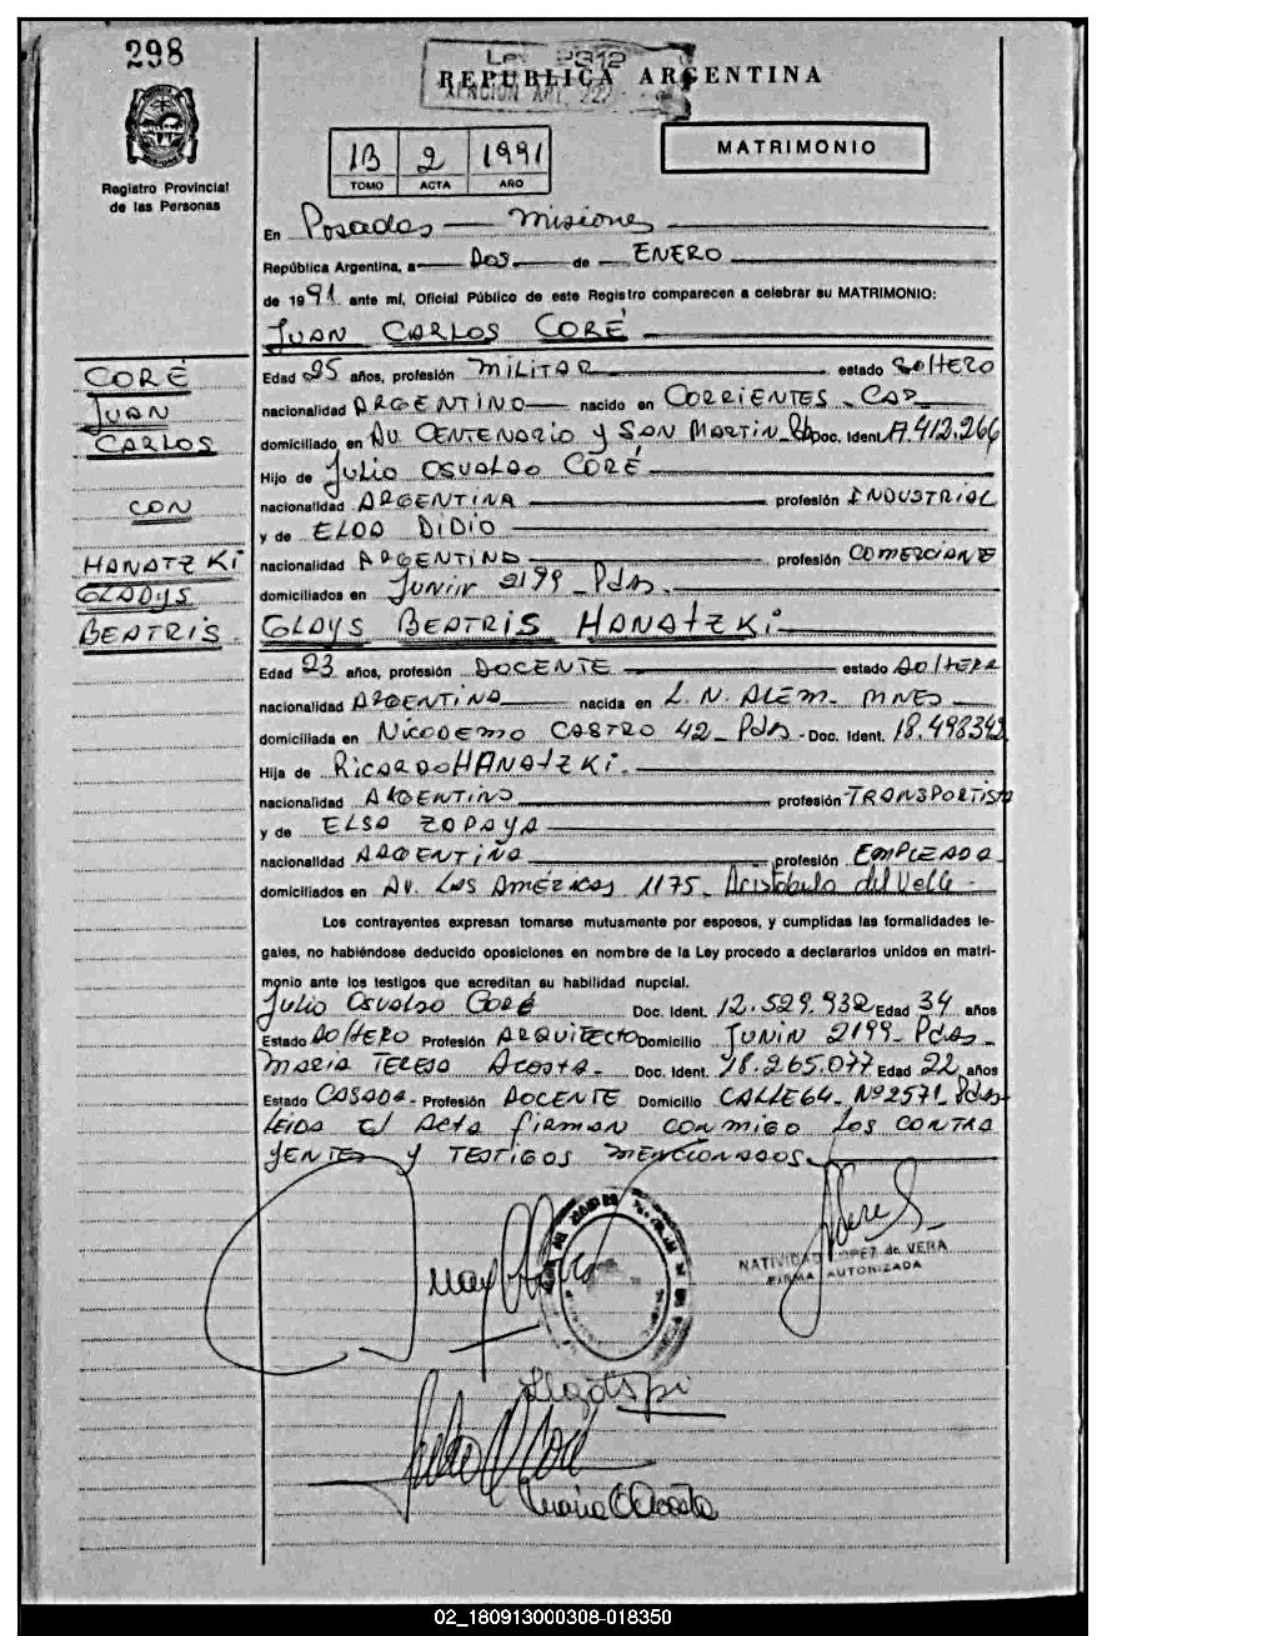 298
Registro Provincial
de las Personas
Ley 2312
REPUBLICA ARGENTINA
MATRIMONIO
1B 2 1991
TOMO ACTA AÑO
En Posadas — Misiones
República Argentina, a Dos de ENERO
de 1991 ante mí, Oficial Público de este Registro comparecen a celebrar su MATRIMONIO:
JUAN CARLOS CORÉ
CORÉ
JUAN
CARLOS
CON
HANATZKI
GLADYS
BEATRIS
Edad 25 años, profesión MILITAR estado SOLTERO
nacionalidad ARGENTINO nacido en CORRIENTES - CAP
domiciliado en AV. CENTENARIO y SAN MARTIN Doc. Ident. 17.412.266
Hijo de Julio OSVALDO CORÉ
nacionalidad ARGENTINA profesión INDUSTRIAL
y de ELDA DIDIO
nacionalidad ARGENTINA profesión COMERCIANE
domiciliados en Junin 2199 - Pdas.
GLDYS BEATRIS HANATZKI
Edad 23 años, profesión DOCENTE estado SOLTERA
nacionalidad ARGENTINA nacida en L. N. ALEM - MNES
domiciliada en NICODEMO CASTRO 42 - Pdas - Doc. Ident. 18.498342
Hija de RICARDO HANATZKI.
nacionalidad ARGENTINO profesión TRANSPORTISTA
y de ELSA ZOPAYA
nacionalidad ARGENTINA profesión EMPLEADA
domiciliados en AV. LAS AméRicas 1175 - Aristóbulo del Valle -
Los contrayentes expresan tomarse mutuamente por esposos, y cumplidas las formalidades le-
gales, no habiéndose deducido oposiciones en nombre de la Ley procedo a declararlos unidos en matri-
monio ante los testigos que acreditan su habilidad nupcial.
Julio Osvaldo Coré Doc. Ident. 12.529.932 Edad 34 años
Estado SOLTERO Profesión ARQUITECTO Domicilio JUNIN 2199 - Pdas -
MARIA TERESA Acosta - Doc. Ident. 18.265.077 Edad 22 años
Estado CASADA - Profesión DOCENTE Domicilio CALLE 64 - Nº 2571 - Pdas
LEIDA el Acta firman conmigo LOS CONTRA
YENTES y TESTIGOS MENCIONADOS
NATIVIDAD LOPEZ de VERA
FIRMA AUTORIZADA
02_180913000308-018350